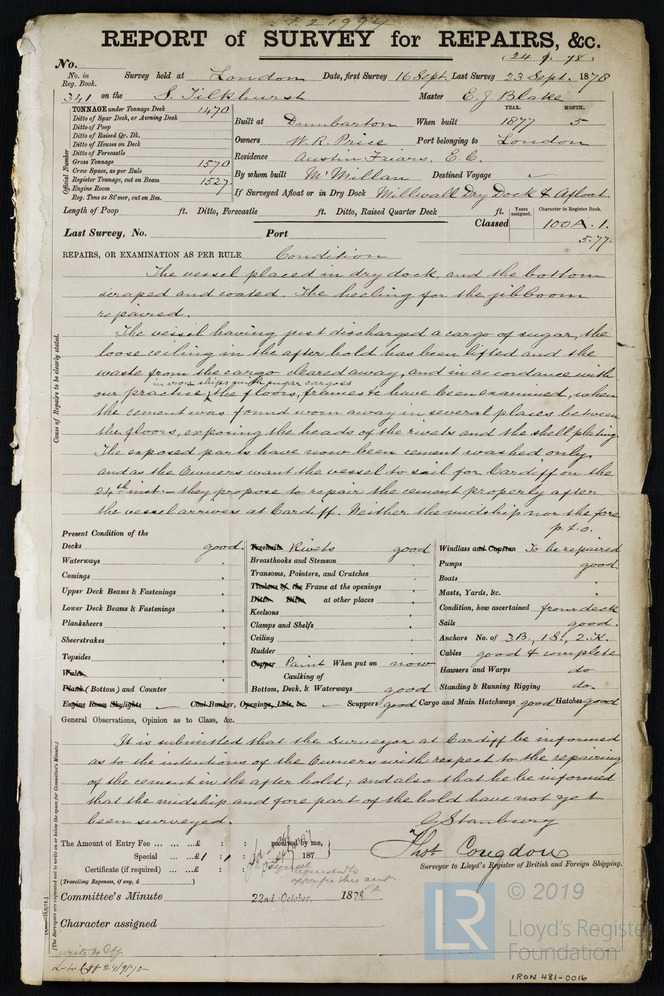 1.2.1994
REPORT of SURVEY for REPAIRS, &c.
(24. 9. 78)
No.
No. in Reg. Book. Survey held at London Date, first Survey 16 Sept. Last Survey 23 Sept. 1878
341 on the S. Tilkhurst Master E. J. Blake
TONNAGE under Tonnage Deck 1470
Ditto of Spar Deck, or Awning Deck
Ditto of Poop
Ditto of Raised Qr. Dk.
Ditto of Houses on Deck
Ditto of Forecastle
Gross Tonnage 1570
Crew Space, as per Rule
Register Tonnage, cut on Beam 1527
Engine Room
Reg. Tons as St'mer, cut on Bm.
Official Number
Built at Dumbarton When built YEAR. 1877 MONTH. 5
Owners W. R. Price Port belonging to London
Residence Austin Friars, E.C.
By whom built McMillan Destined Voyage
If Surveyed Afloat or in Dry Dock Millwall Dry Dock & Afloat
Length of Poop ft. Ditto, Forecastle ft. Ditto, Raised Quarter Deck ft.
Last Survey, No. Port Classed
Years assigned. Character in Register Book.
100 A. 1.
5.77.
REPAIRS, OR EXAMINATION AS PER RULE Condition
The vessel placed in dry dock, and the bottom
scraped and coated. The heeling for the jibboom
repaired.
The vessel having just discharged a cargo of sugar, the
loose ceiling in the after hold has been lifted and the
waste from the cargo cleared away, and in accordance with
our practice in iron ships with sugar cargoes the floors, frames &c have been examined, when
the cement was found worn away in several places between
the floors, exposing the heads of the rivets and the shell plating.
The exposed parts have now been cement washed only,
and as the Owners want the vessel to sail for Cardiff on the
24th inst they propose to repair the cement properly after
the vessel arrives at Cardiff. Neither the midship nor the fore
p.t.o.
Cause of Repairs to be clearly stated.
Present Condition of the
Decks good.
Waterways
Comings
Upper Deck Beams & Fastenings
Lower Deck Beams & Fastenings
Planksheers
Sheerstrakes
Topsides
Wales
Plank (Bottom) and Counter
Treenails Rivets good
Breasthooks and Stemson
Transoms, Pointers, and Crutches
Timbers of the Frame at the openings
Ditto Ditto at other places
Keelsons
Clamps and Shelfs
Ceiling
Rudder
Copper Paint When put on now
Caulking of
Bottom, Deck, & Waterways good
Windlass and Capstan To be repaired
Pumps good
Boats
Masts, Yards, &c.
Condition, how ascertained from deck
Sails good.
Anchors No. of 3B., 1S., 2K.
Cables good & complete
Hawsers and Warps do
Standing & Running Rigging do.
Engine Room Skylights Coal Bunker, Openings, Lids, &c. Scuppers good Cargo and Main Hatchways good Hatches good
General Observations, Opinion as to Class, &c.
It is submitted that the Surveyor at Cardiff be informed
as to the intentions of the Owners with respect to the repairing
of the cement in the after hold; and also that he be informed
that the midship and fore part of the hold have not yet
been surveyed.
G. Stanbury
Thos Congdon
Surveyor to Lloyd's Register of British and Foreign Shipping.
The Amount of Entry Fee £ : : received by me,
Special £1 : 1 : 187
Certificate (if required) £ : :
(Travelling Expenses, if any, £ )
Committee's Minute 22nd October, 1878
Character assigned
(The Surveyors are requested not to write on or below the space for Committee's Minute.)
write to Cff
24/9/78
© 2019
LR Lloyd's Register
Foundation
IRON 481-0016